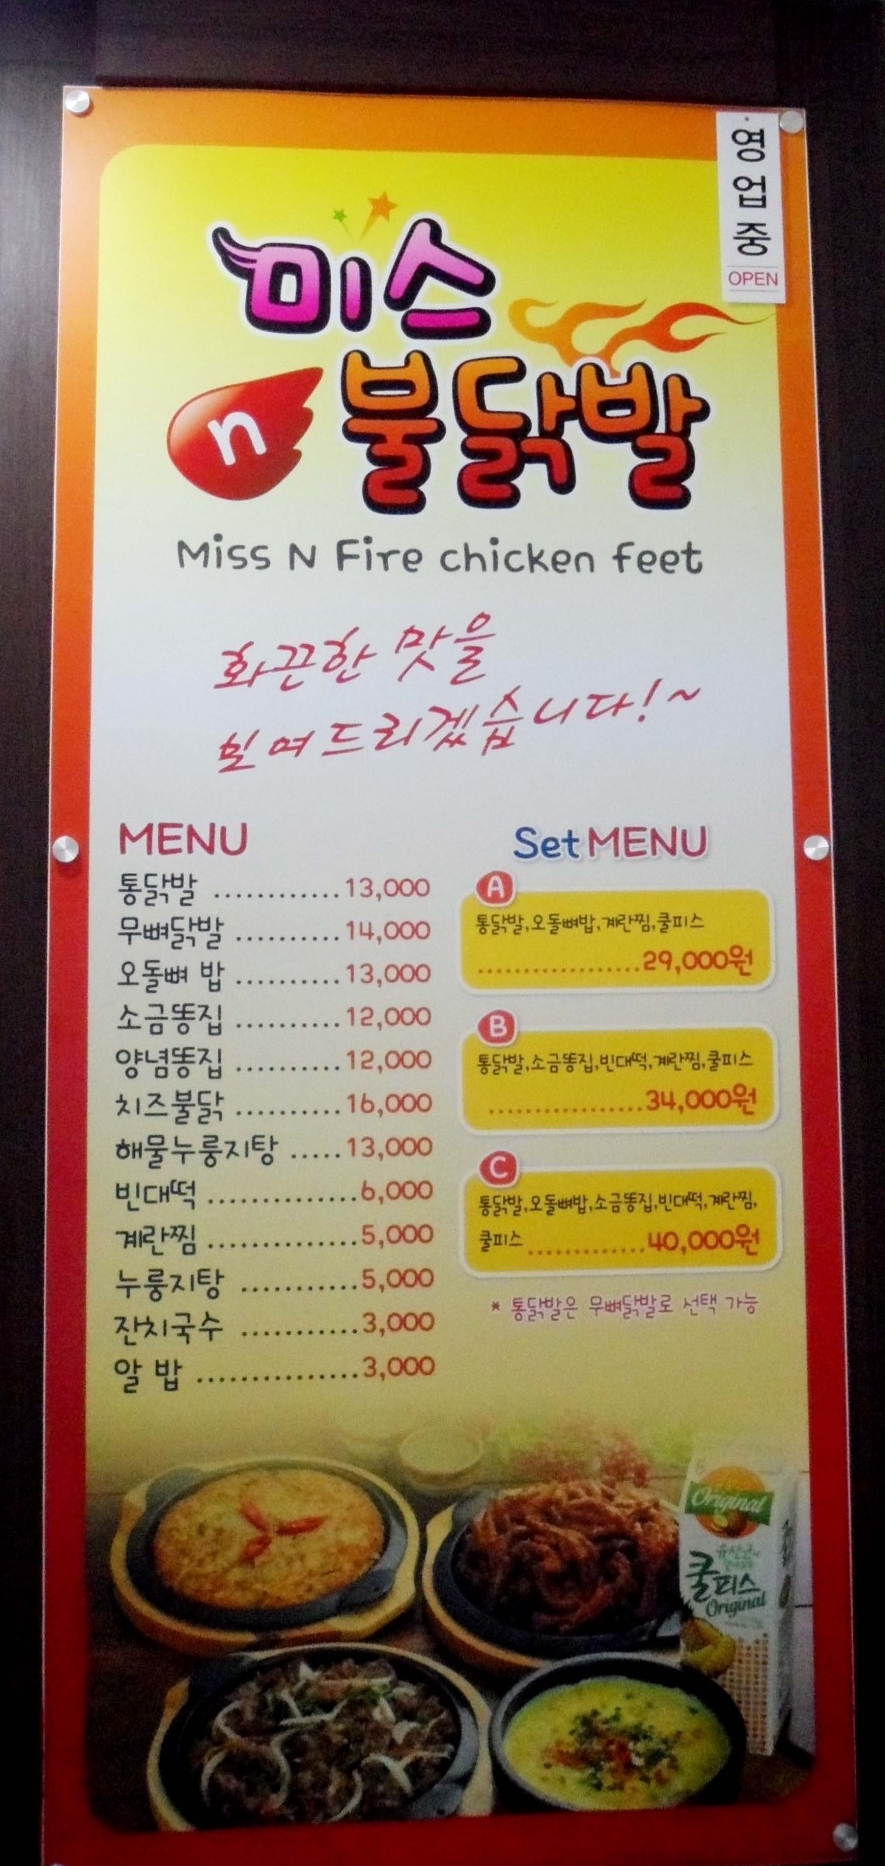 영
업
중
OPEN
미스
n 불닭발
Miss N Fire chicken feet
화끈한 맛을
보여드리겠습니다!~
MENU
통닭발 ............13,000
무뼈닭발 ..........14,000
오돌뼈 밥 ..........13,000
소금똥집 ..........12,000
양념똥집 ..........12,000
치즈불닭 ..........16,000
해물누룽지탕 .....13,000
빈대떡 ..............6,000
계란찜 ..............5,000
누룽지탕 ...........5,000
잔치국수 ...........3,000
알 밥 ................3,000
Set MENU
A
통닭발,오돌뼈밥,계란찜,쿨피스
..................29,000원
B
통닭발,소금똥집,빈대떡,계란찜,쿨피스
.................34,000원
C
통닭발,오돌뼈밥,소금똥집,빈대떡,계란찜,
쿨피스 .............40,000원
* 통닭발은 무뼈닭발로 선택 가능
Original
쿨피스
Original